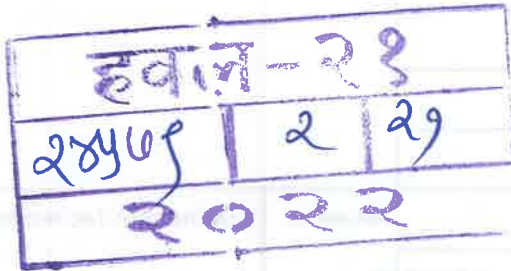 हवाल-२३
२४५७९ | २ | २१
२०२२